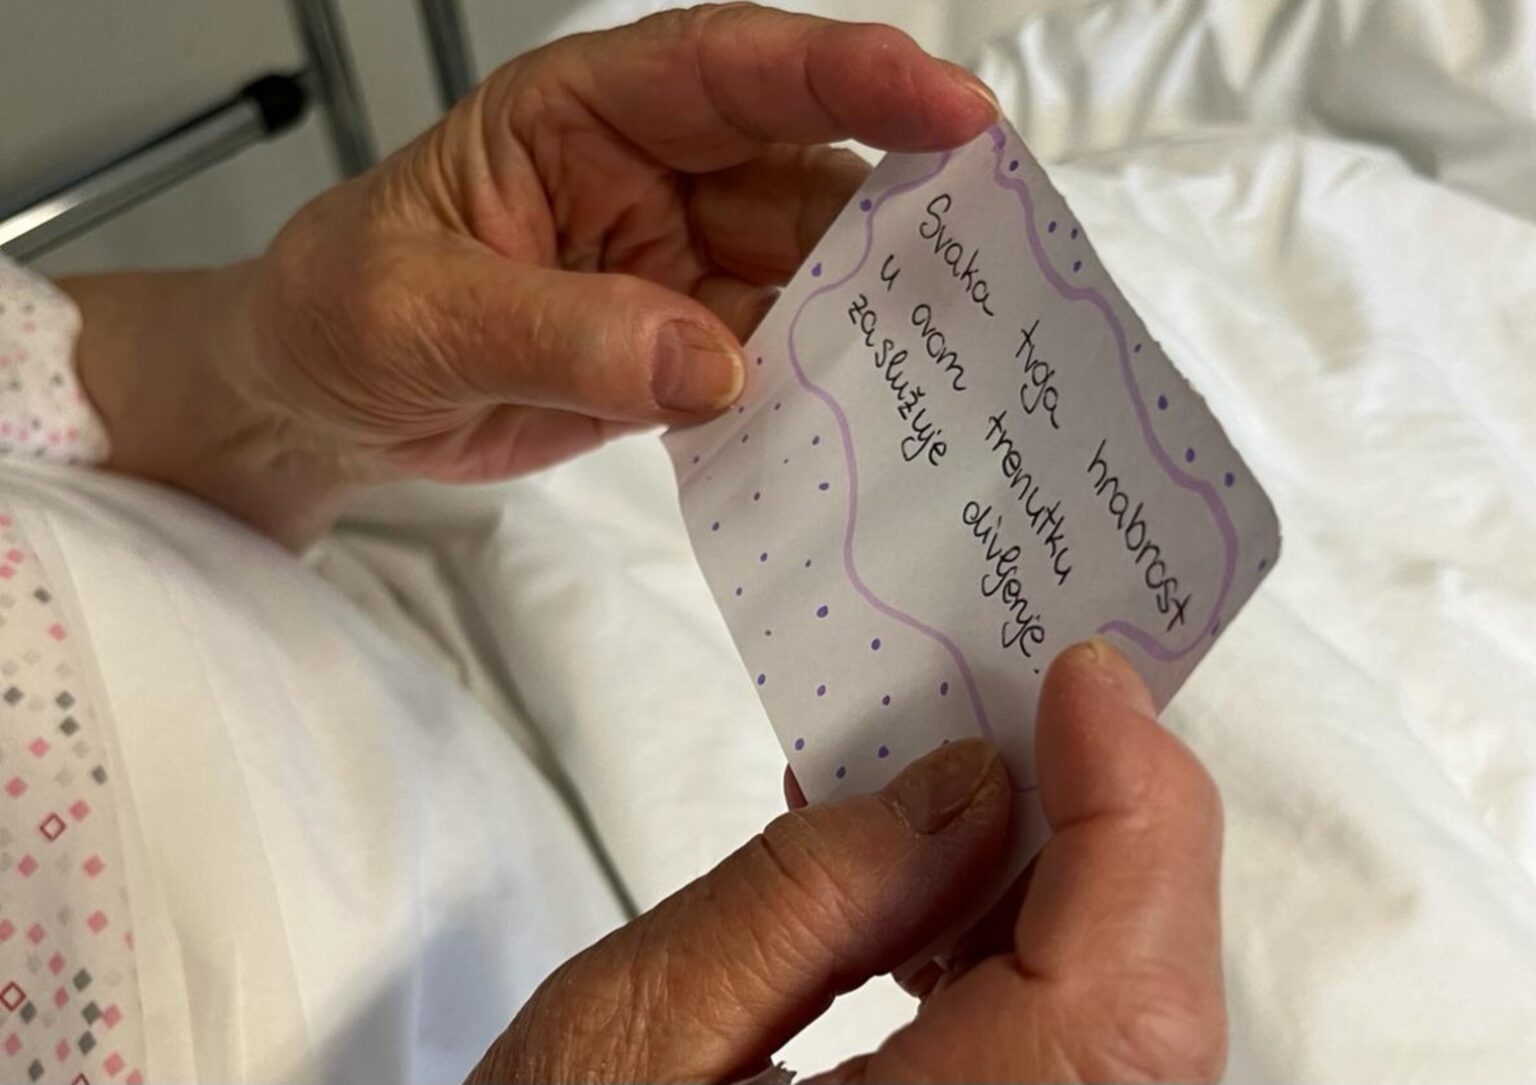 Svaka tvoja hrabrost
u ovom trenutku
zaslužuje divljenje.